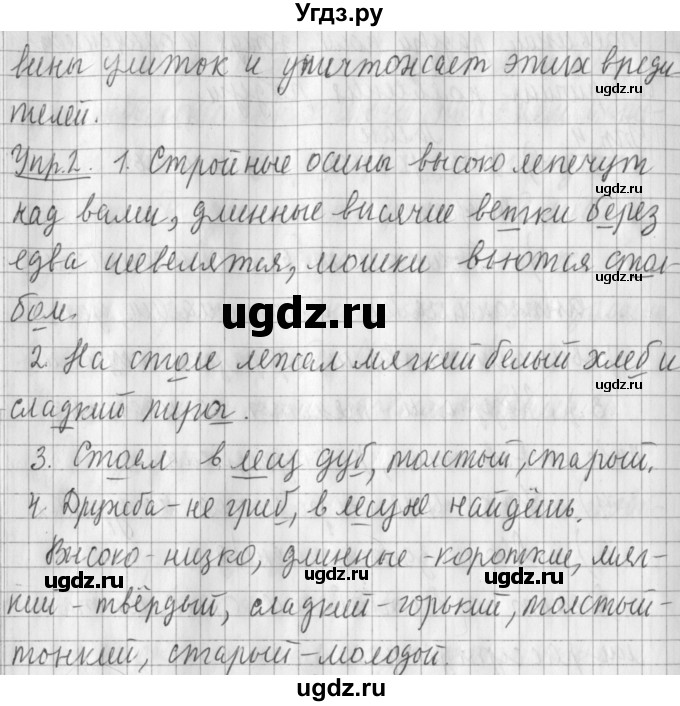 Угдз.ру
вины улиток и уничтожает этих вреди-
ugdz.ru
телей.
ugdz.ru
Упр.2. 1. Стройные осины высоко лепечут
над вами, длинные висячие ветки берез
ugdz.ru
едва шевелятся, мошки вьются стол-
ugdz.ru
бом.
ugdz.ru
2. На столе лежал мягкий белый хлеб и
ugdz.ru
сладкий пирог.
3. Стоял в лесу дуб, толстый, старый.
ugdz.ru
4. Дружба - не гриб, в лесу не найдёшь.
Высоко - низко, длинные - короткие, мяг-
ugdz.ru ugdz.ru
кий - твёрдый, сладкий - горький, толстый -
ugdz.ru
тонкий, старый - молодой.
ugdz.ru